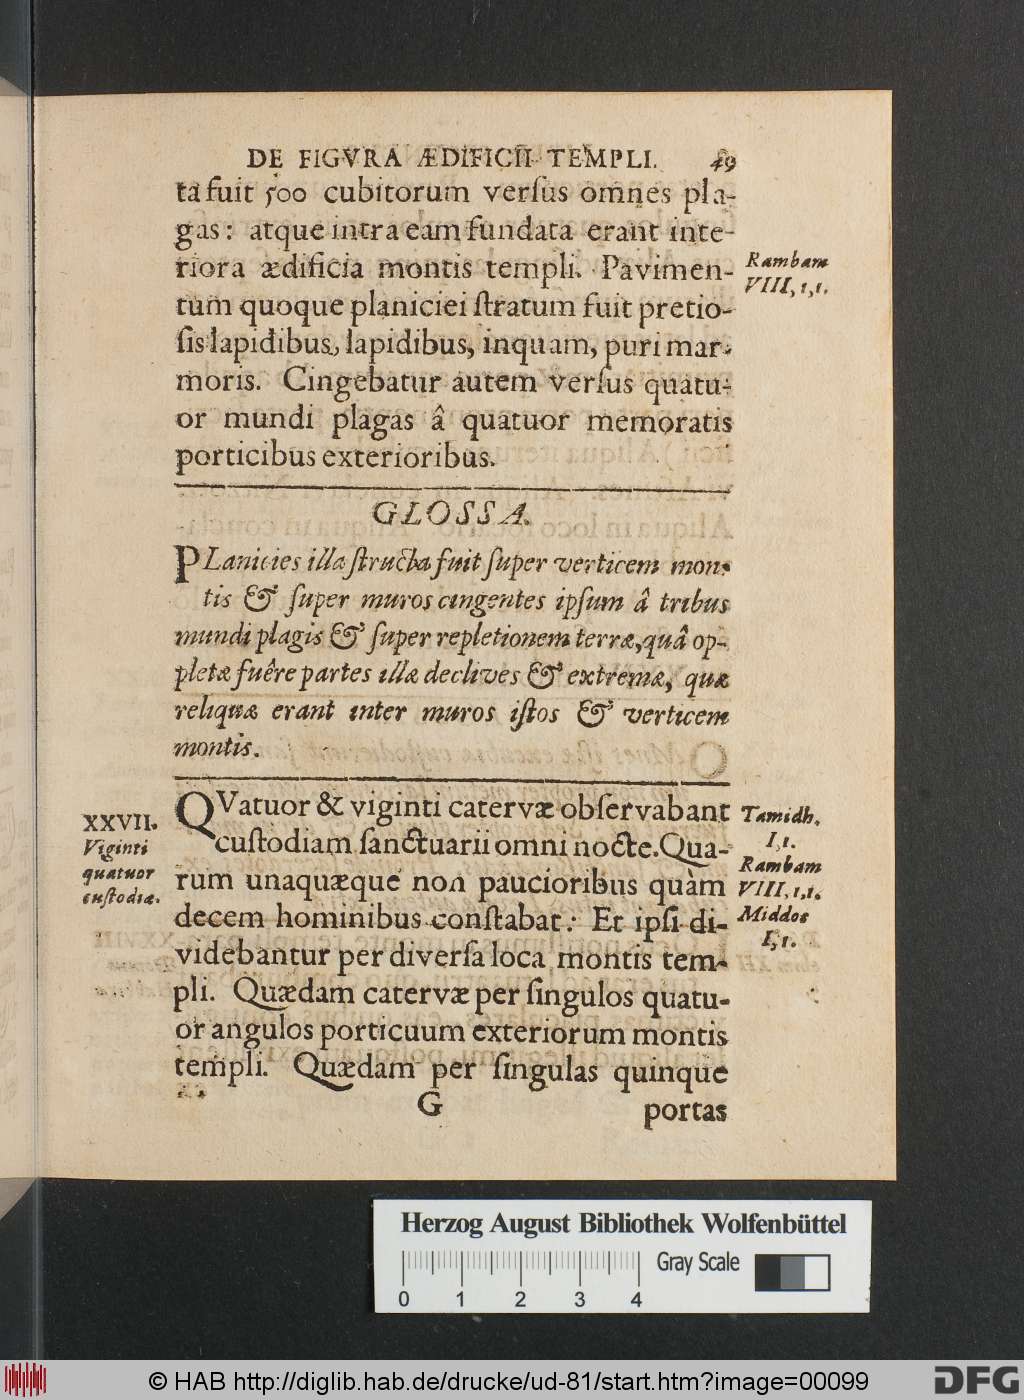 DE FIGVRA ÆDIFICII TEMPLI. 49
ta fuit 500 cubitorum verſus omnes pla-
gas: atque intra eam fundata erant inte-
riora ædificia montis templi. Pavimen-
tum quoque planiciei ſtratum fuit pretio-
ſis lapidibus, lapidibus, inquam, puri mar-
moris. Cingebatur autem verſus quatu-
or mundi plagas â quatuor memoratis
porticibus exterioribus.
Rambam
VIII, 1, 1.
GLOSSA.
PLanicies illa ſtructa fuit ſuper verticem mon-
tis & ſuper muros cingentes ipſum â tribus
mundi plagis & ſuper repletionem terræ, quâ op-
pletæ fuêre partes illæ declives & extremæ, quæ
reliquæ erant inter muros iſtos & verticem
montis.
XXVII.
Viginti
quatuor
cuſtodiæ.
QVatuor & viginti catervæ obſervabant
cuſtodiam ſanctuarii omni nocte. Qua-
rum unaquæque non paucioribus quàm
decem hominibus conſtabat: Et ipſi di-
videbantur per diverſa loca montis tem-
pli. Quædam catervæ per ſingulos quatu-
or angulos porticuum exteriorum montis
templi. Quædam per ſingulas quinque
Tamidh.
I, 1.
Rambam
VIII, 1, 1.
Middos
I, 1.
G portas
Herzog August Bibliothek Wolfenbüttel
Gray Scale
0 1 2 3 4
© HAB http://diglib.hab.de/drucke/ud-81/start.htm?image=00099
DFG